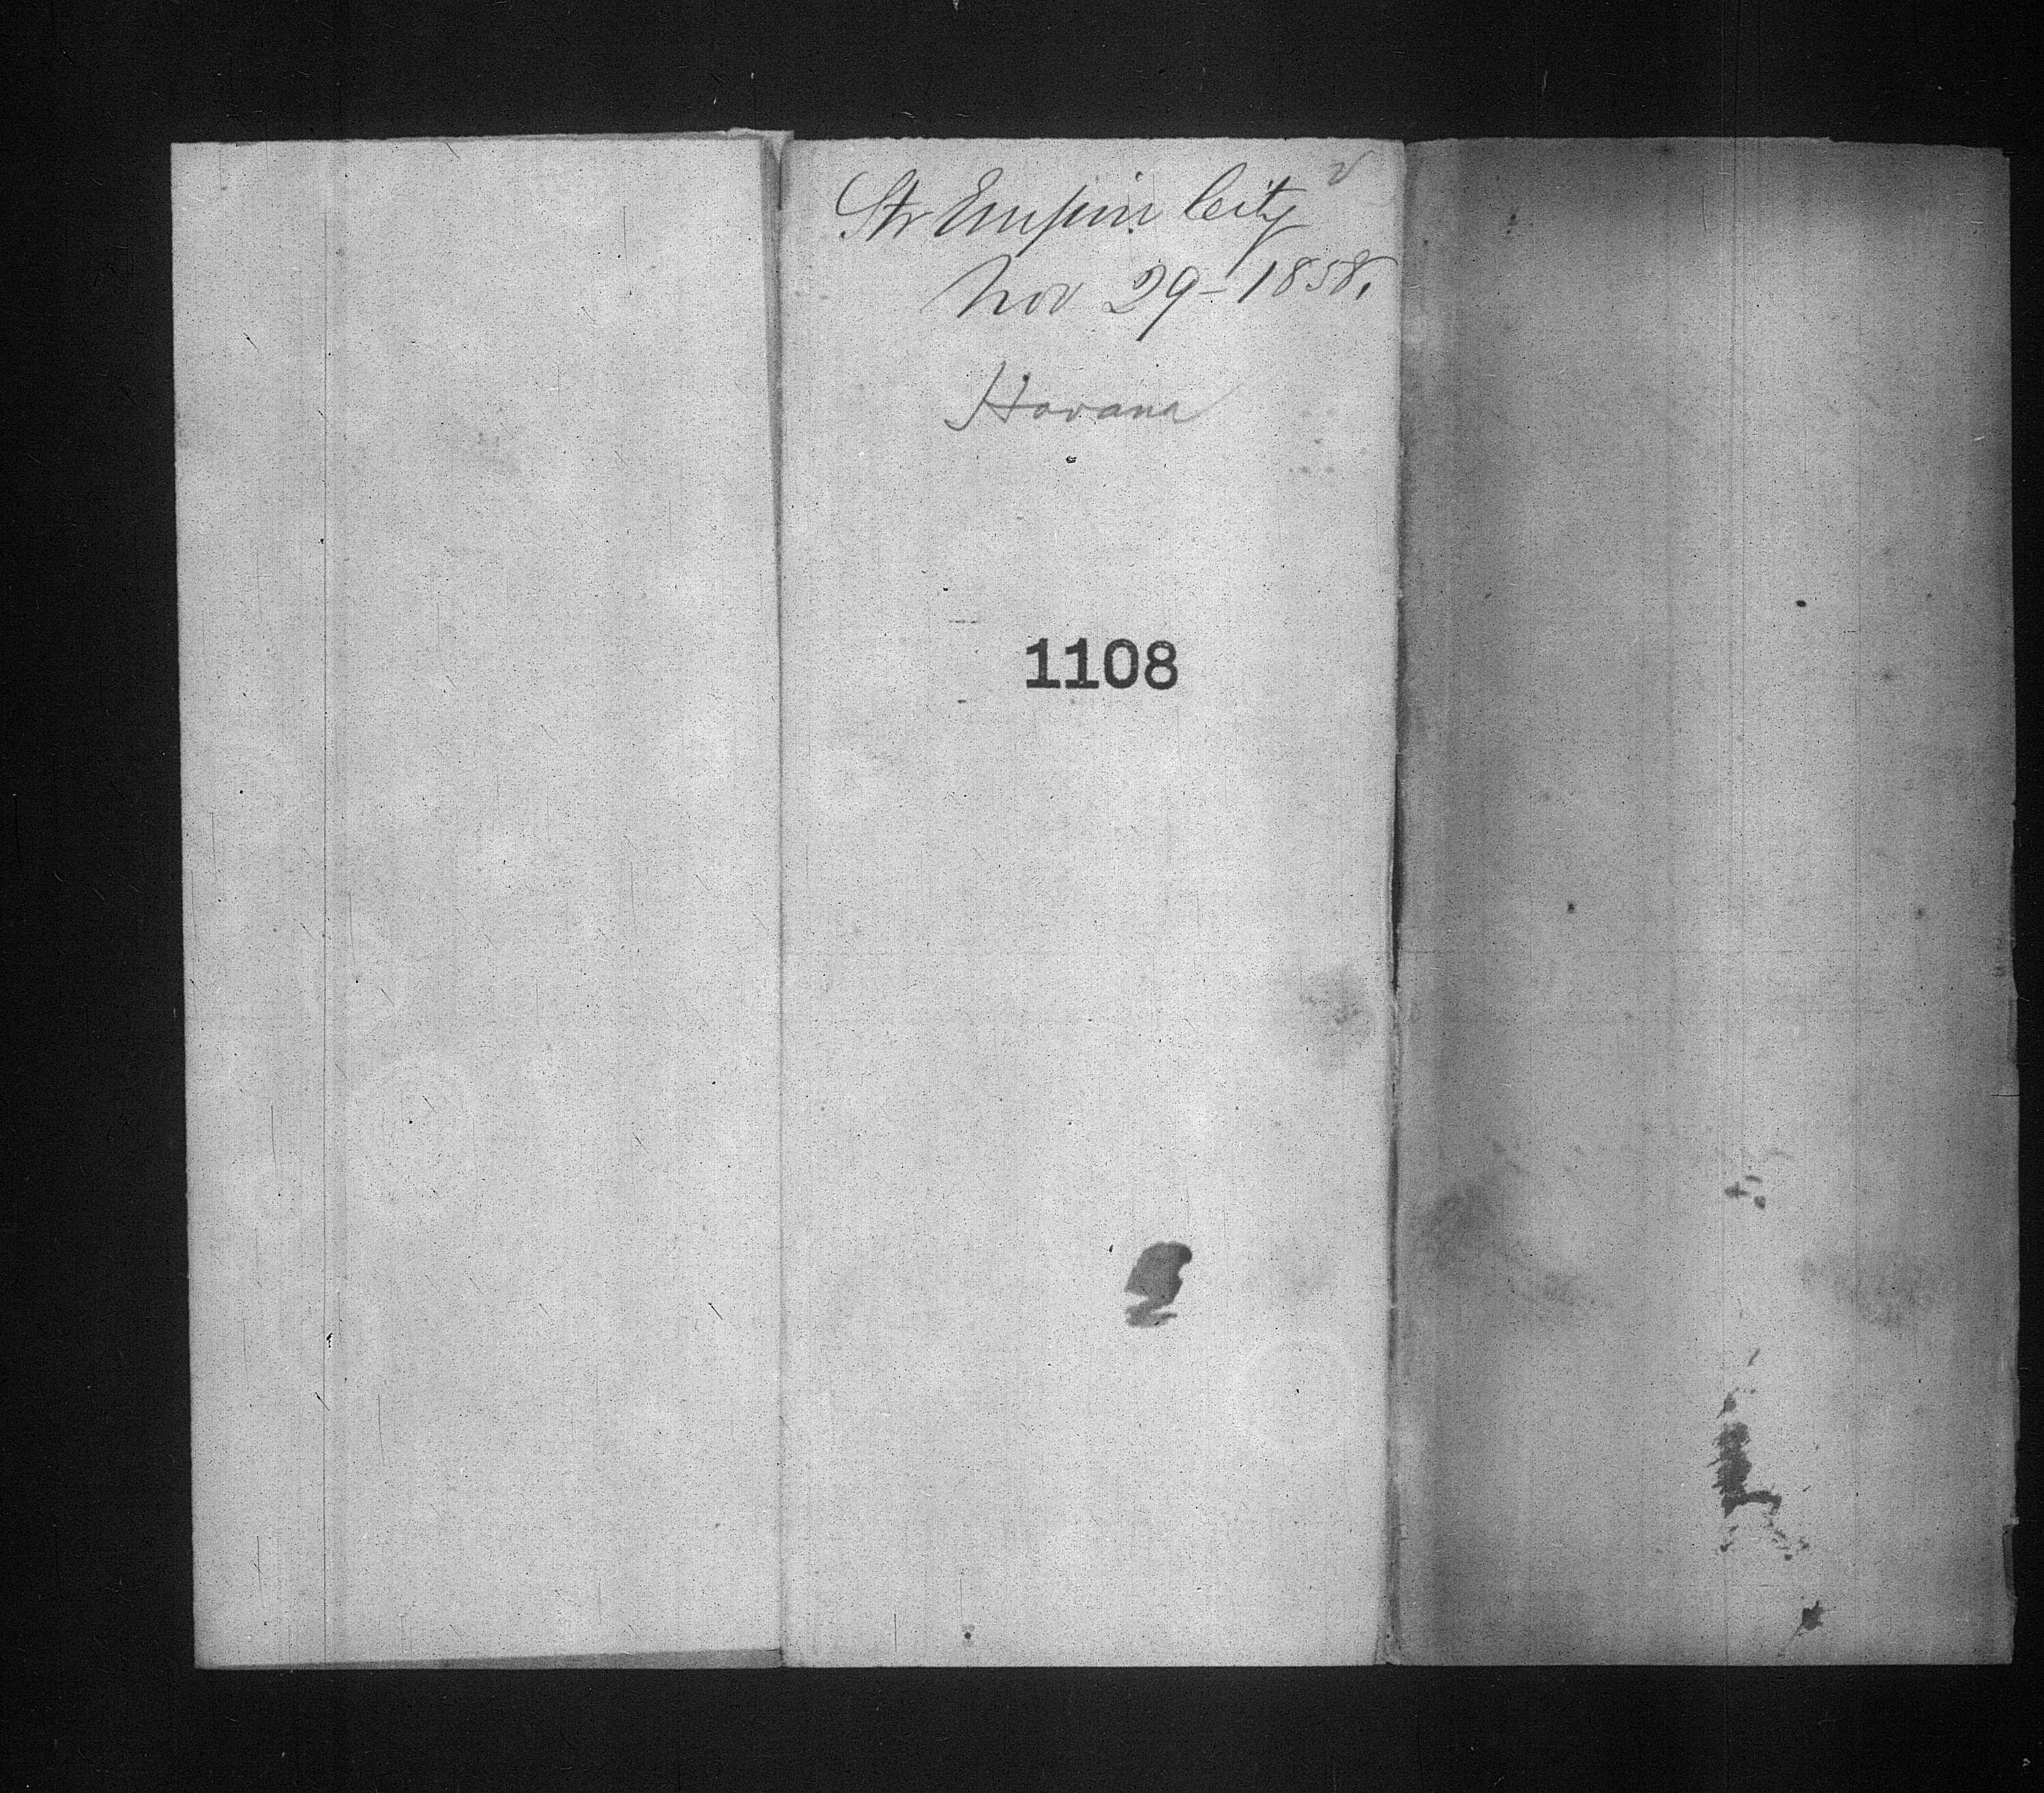 Str Empire City
Nov 29 - 1858.
Havana
1108